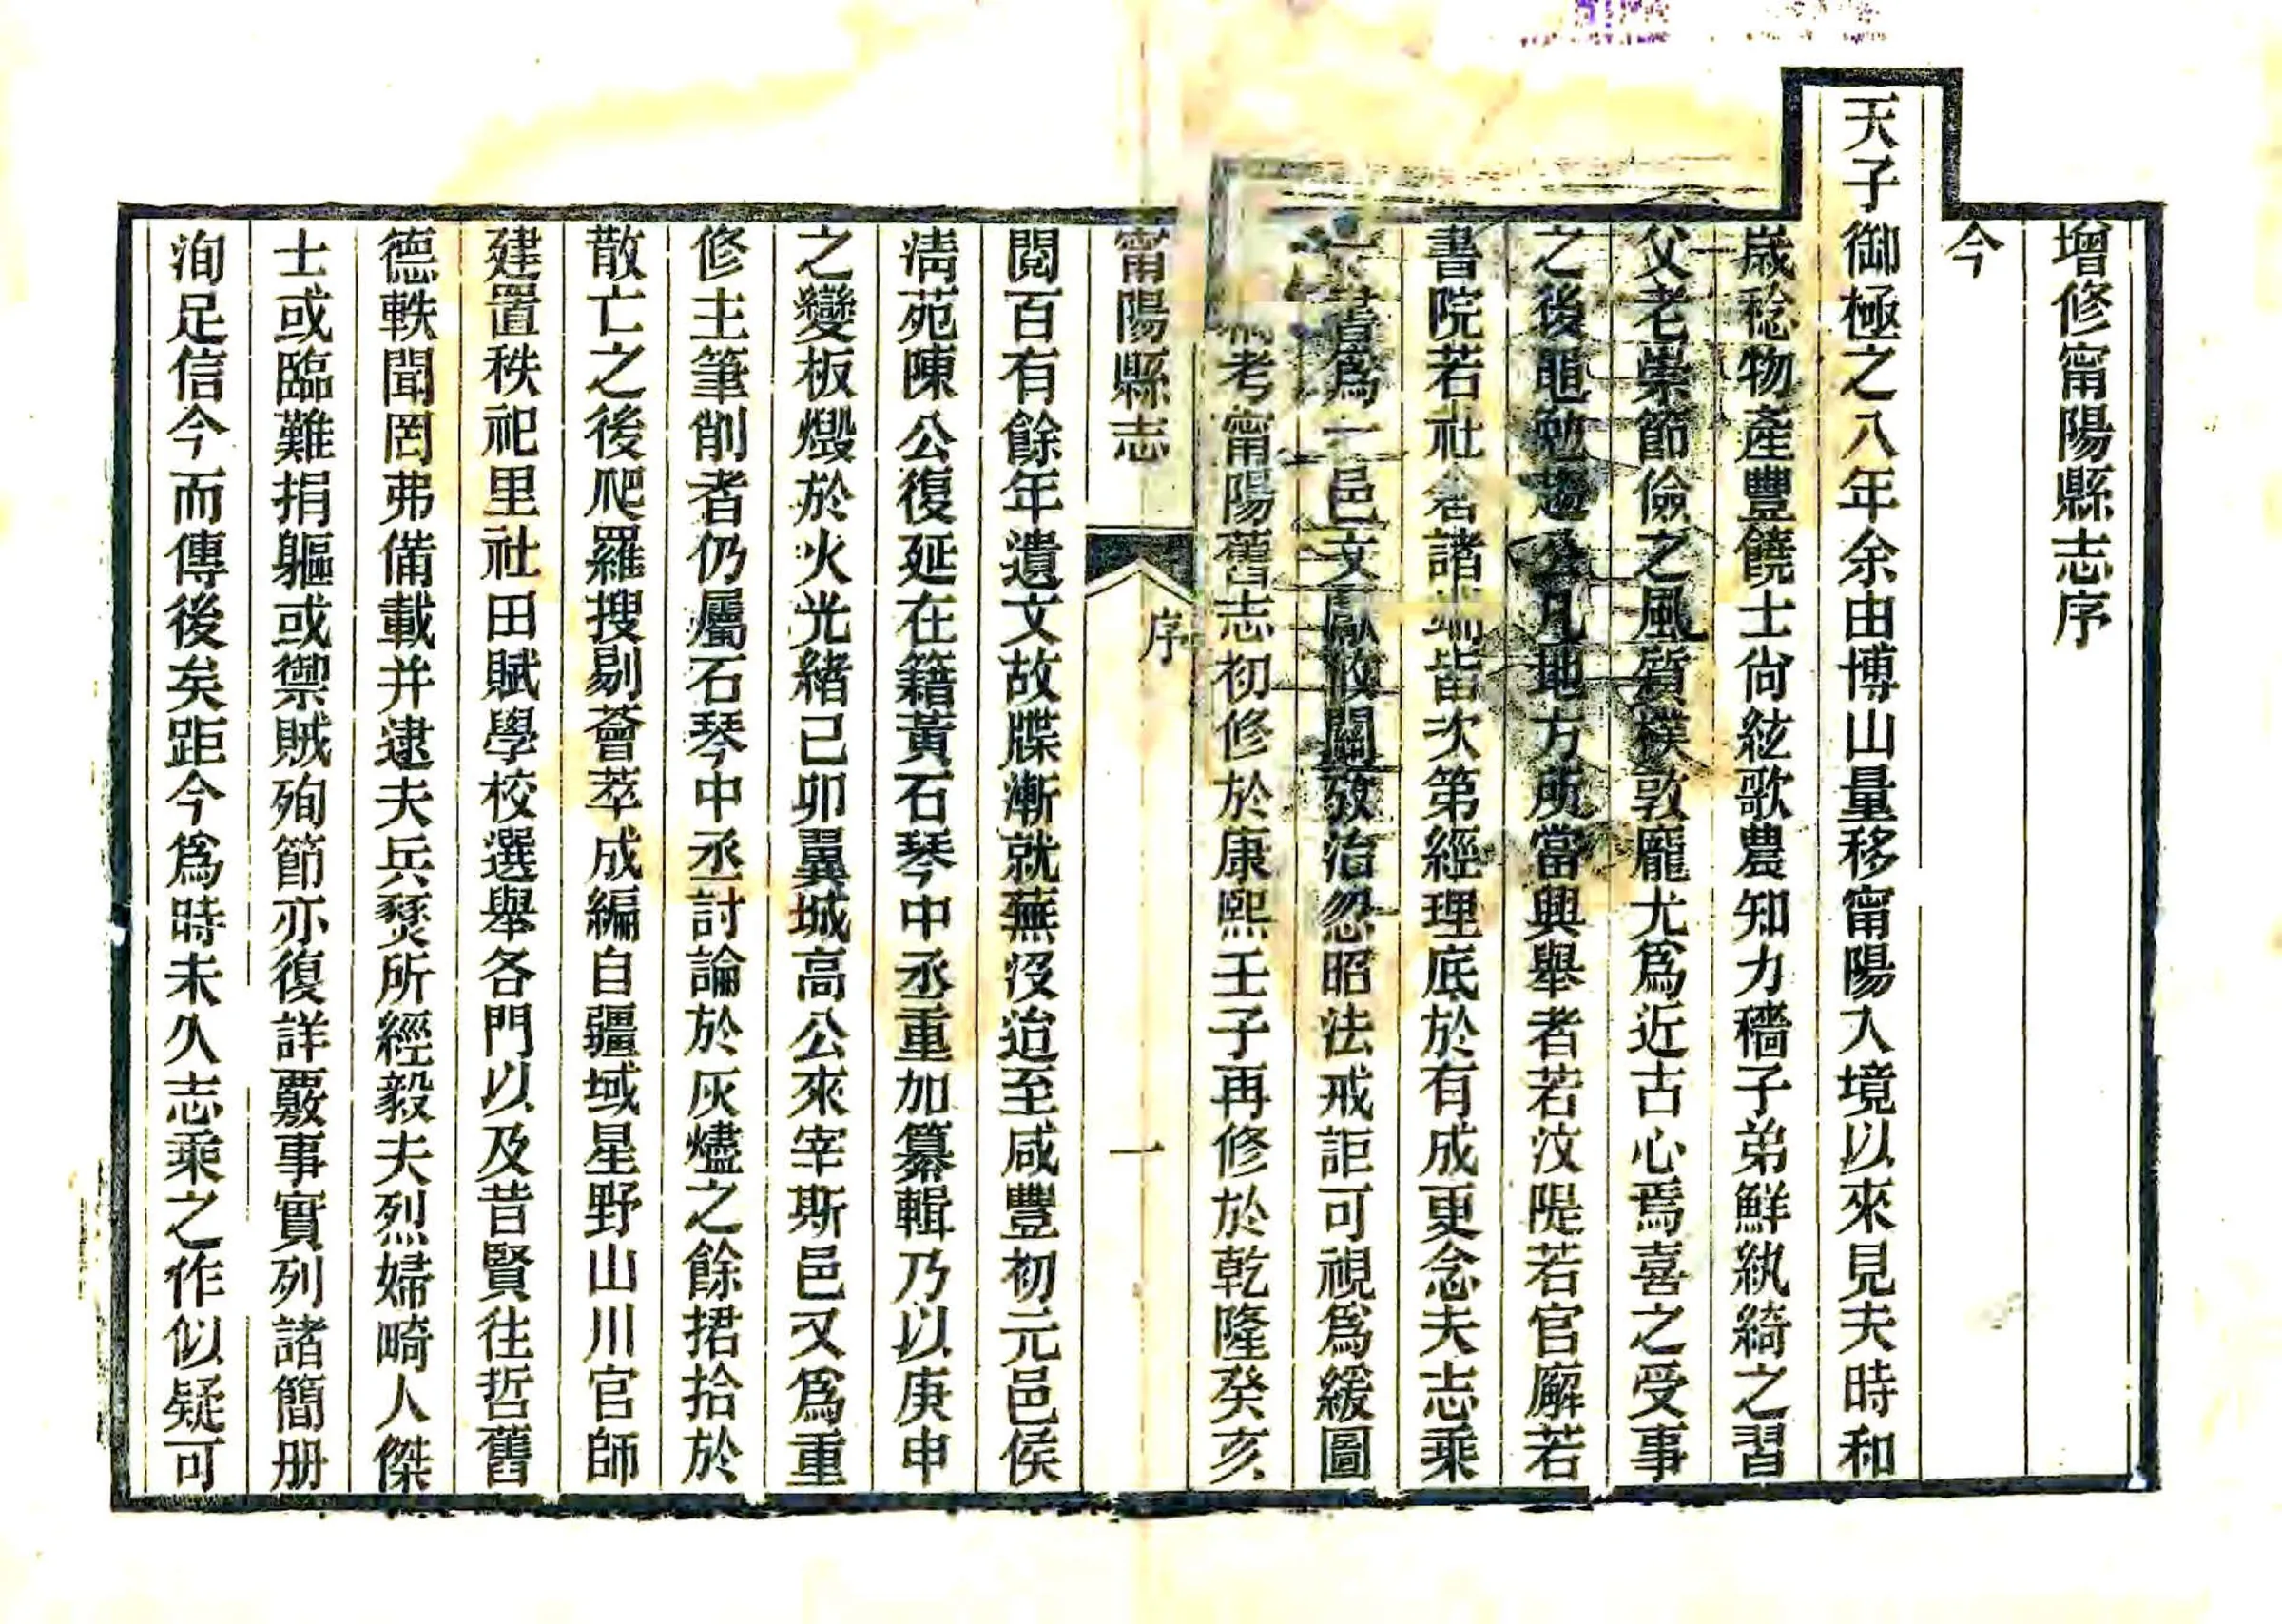 增修甯陽縣志序
今
天子御極之八年余由博山量移甯陽入境以來見夫時和
歲稔物產豐饒士尚絃歌農知力穡子弟鮮紈綺之習
父老崇節儉之風質樸敦龐尤爲近古心焉喜之受事
之後黽勉趨公凡地方所當興舉者若汶隄若官廨若
書院若社倉諸端皆次第經理底於有成更念夫志乘
一書爲一邑文獻攸關攷治忽昭法戒詎可視爲緩圖
考甯陽舊志初修於康熙壬子再修於乾隆癸亥
甯陽縣志
序
一
閱百有餘年遺文故牒漸就蕪沒迨至咸豐初元邑侯
淸苑陳公復延在籍黃石琴中丞重加纂輯乃以庚申
之變板燬於火光緒己卯翼城高公來宰斯邑又爲重
修主筆削者仍屬石琴中丞討論於灰燼之餘捃拾於
散亡之後爬羅搜剔薈萃成編自疆域星野山川官師
建置秩祀里社田賦學校選舉各門以及昔賢往哲舊
德軼聞罔弗備載并逮夫兵燹所經毅夫烈婦畸人傑
士或臨難捐軀或禦賊殉節亦復詳覈事實列諸簡册
洵足信今而傳後矣距今爲時未久志乘之作似疑可